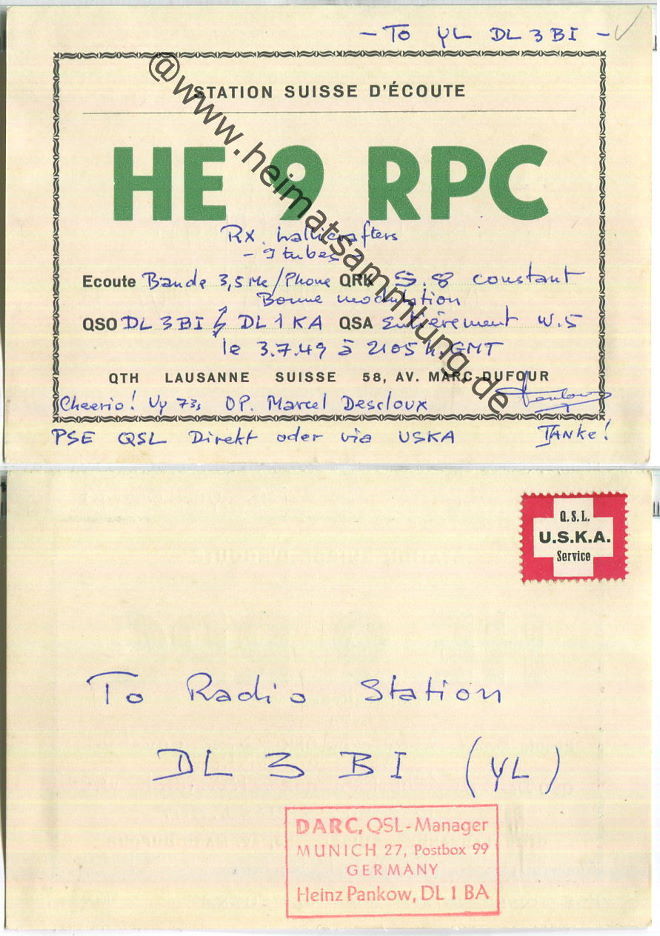 - TO YL DL 3 BI -
STATION SUISSE D'ÉCOUTE
HE 9 RPC
RX. hallicrafters
- 9 tubes -
Ecoute Bande 3,5 Mc / Phone QRK S. 8 constant
Bonne modulation
QSO DL 3 BI DL 1 KA QSA Entièrement W. 5
le 3.7.49 à 2105 H. GMT
QTH LAUSANNE SUISSE 58, AV. MARC-DUFOUR
Cheerio! Vy 73s OP. Marcel Descloux
PSE QSL Direkt oder via USKA TANKE!
@www.heimatsammlung.de
Q.S.L.
U.S.K.A.
Service
To Radio Station
DL 3 BI (YL)
DARC, QSL-Manager
MUNICH 27, Postbox 99
GERMANY
Heinz Pankow, DL 1 BA